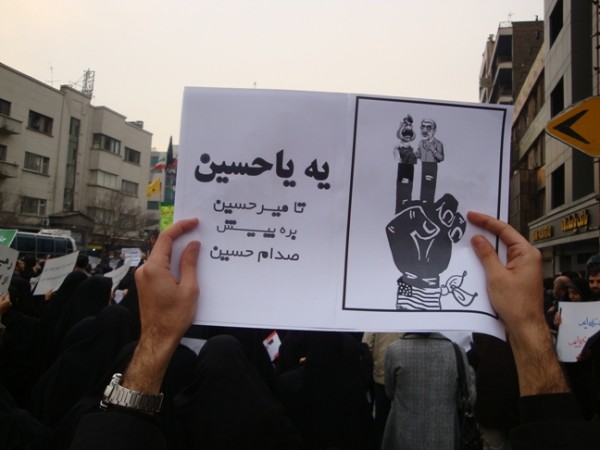 یه یاحسین
تا میرحسین
بره پیـیـش
صدام حسین